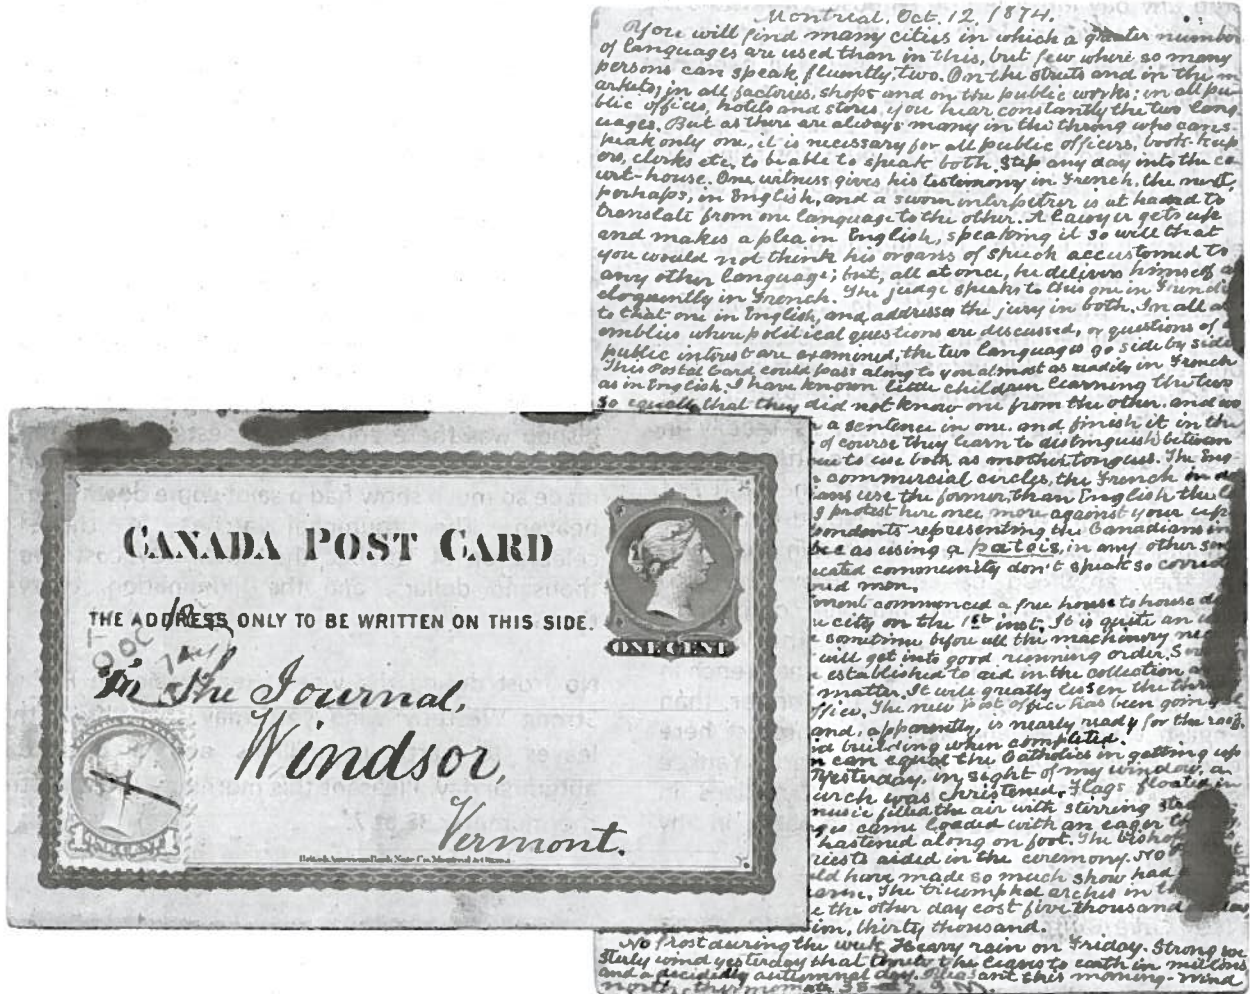 Montreal, Oct. 12, 1874.
You will find many cities in which a greater number
of languages are used than in this, but few where so many
persons can speak, fluently, two. On the streets and in the m-
arkets, in all factories, shops and on the public works; in all pu-
blic offices, hotels and stores, you hear constantly the two lang-
uages. But as there are always many in the throng who can s-
peak only one, it is necessary for all public officers, book-keep-
ers, clerks etc. to be able to speak both. Step any day into the co-
urt-house. One witness gives his testimony in French, the next,
perhaps, in English, and a sworn interpetrer is at hand to
translate from one language to the other. A lawyer gets up
and makes a plea in English, speaking it so well that
you would not think his organs of speech accustomed to
any other language; but, all at once, he delivers himself as
eloquently in French. The judge speaks to this one in French
to that one in English, and addresses the jury in both. In all as
emblies where political questions are discussed, or questions of
public interest are examined, the two languages go side by side
This Postal Card could pass along to you almost as readily in French
as in English. I have known little children learning the two
so equally that they did not know one from the other, and wo
a sentence in one, and finish it in the
of course they learn to distinguish between
to use both as mother tongues. The Eng
commercial circles, the French in
ans use the former, than English the
protest here once more against your
ondents representing the Canadians in
as using a patois, in any other
cated community don't speak so
men.
ment commenced a free house to house
city on the 1st inst. It is quite an
sometime before all the machinery
will get into good running order.
established to aid in the collection
matter. It will greatly lessen the
ffice. The new Post office has been going
and, apparently, is nearly ready for the roof.
building when completed.
can equal the Catholics in getting up
Yesterday, in sight of my window, a
urch was christened. Flags floated in
music filled the air with stirring
came loaded with an eager
hastened along on foot. The bishop
riests aided in the ceremony. No
ld have made so much show had
The triumphal arches in
the other day cost five thousand
ion, thirty thousand.
No frost during the week. Heavy rain on Friday. Strong we
sterly wind yesterday that the leaves to earth in millions
and a decidedly autumnal day. Pleasant this morning- wind
north, 38
CANADA POST CARD
THE ADDRESS ONLY TO BE WRITTEN ON THIS SIDE.
ONE CENT
To The Journal,
Windsor,
Vermont.
British American Bank Note Co. Montreal & Ottawa